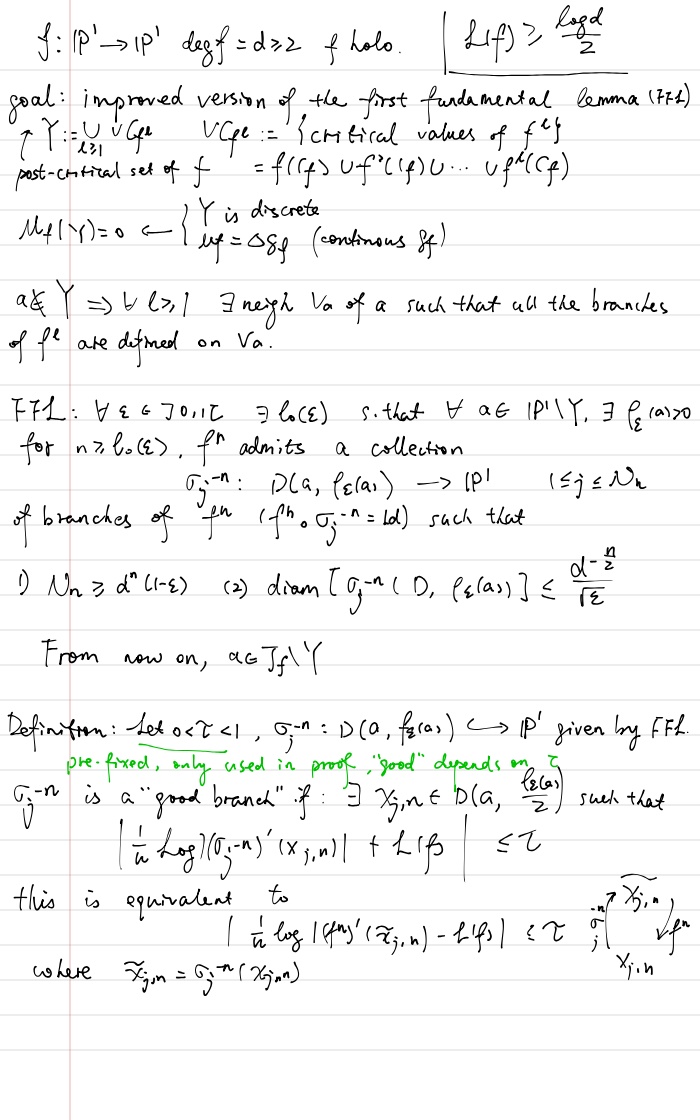 f: ℙ¹ → ℙ¹ deg f = d ≥ 2 f holo. | L(f) ≥ log d / 2
goal: improved version of the first fundamental lemma (FFL)
↑ Y := ∪_{l≥1} VC_{f^l} VC_{f^l} := {critical values of f^l}
post-critical set of f = f(C_f) ∪ f²(C_f) ∪ ... ∪ f^l(C_f)
μ_f(Y) = 0 ← { Y is discrete
μ_f = Δg_f (continous g_f)
a ∉ Y ⇒ ∀ l ≥ 1 ∃ neigh V_a of a such that all the branches
of f^l are defined on V_a.
FFL: ∀ ε ∈ ]0,1[ ∃ l_0(ε) s.that ∀ a ∈ ℙ¹\Y, ∃ ρ_ε(a) > 0
for n ≥ l_0(ε), f^n admits a collection
σ_j^{-n} : D(a, ρ_ε(a)) → ℙ¹ 1 ≤ j ≤ N_n
of branches of f^n (f^n ∘ σ_j^{-n} = Id) such that
1) N_n ≥ d^n (1-ε) (2) diam [σ_j^{-n}(D, ρ_ε(a))] ≤ d^{-n/2} / √ε
From now on, a ∈ J_f \ Y
Definition: Let 0 < τ < 1, σ_j^{-n} : D(a, ρ_ε(a)) ↪ ℙ¹ given by FFL.
pre-fixed, only used in proof, "good" depends on τ
σ_j^{-n} is a "good branch" if : ∃ x_{j,n} ∈ D(a, ρ_ε(a)/2) such that
| 1/n Log |(σ_j^{-n})'(x_{j,n})| + L(f) | ≤ τ
this is equivalent to
| 1/n log |(f^n)'(x̃_{j,n}) - L(f)| ≤ τ σ_j^{-n} ↑ x̃_{j,n} ↓ f^n
x_{j,n}
where x̃_{j,n} = σ_j^{-n}(x_{j,n})